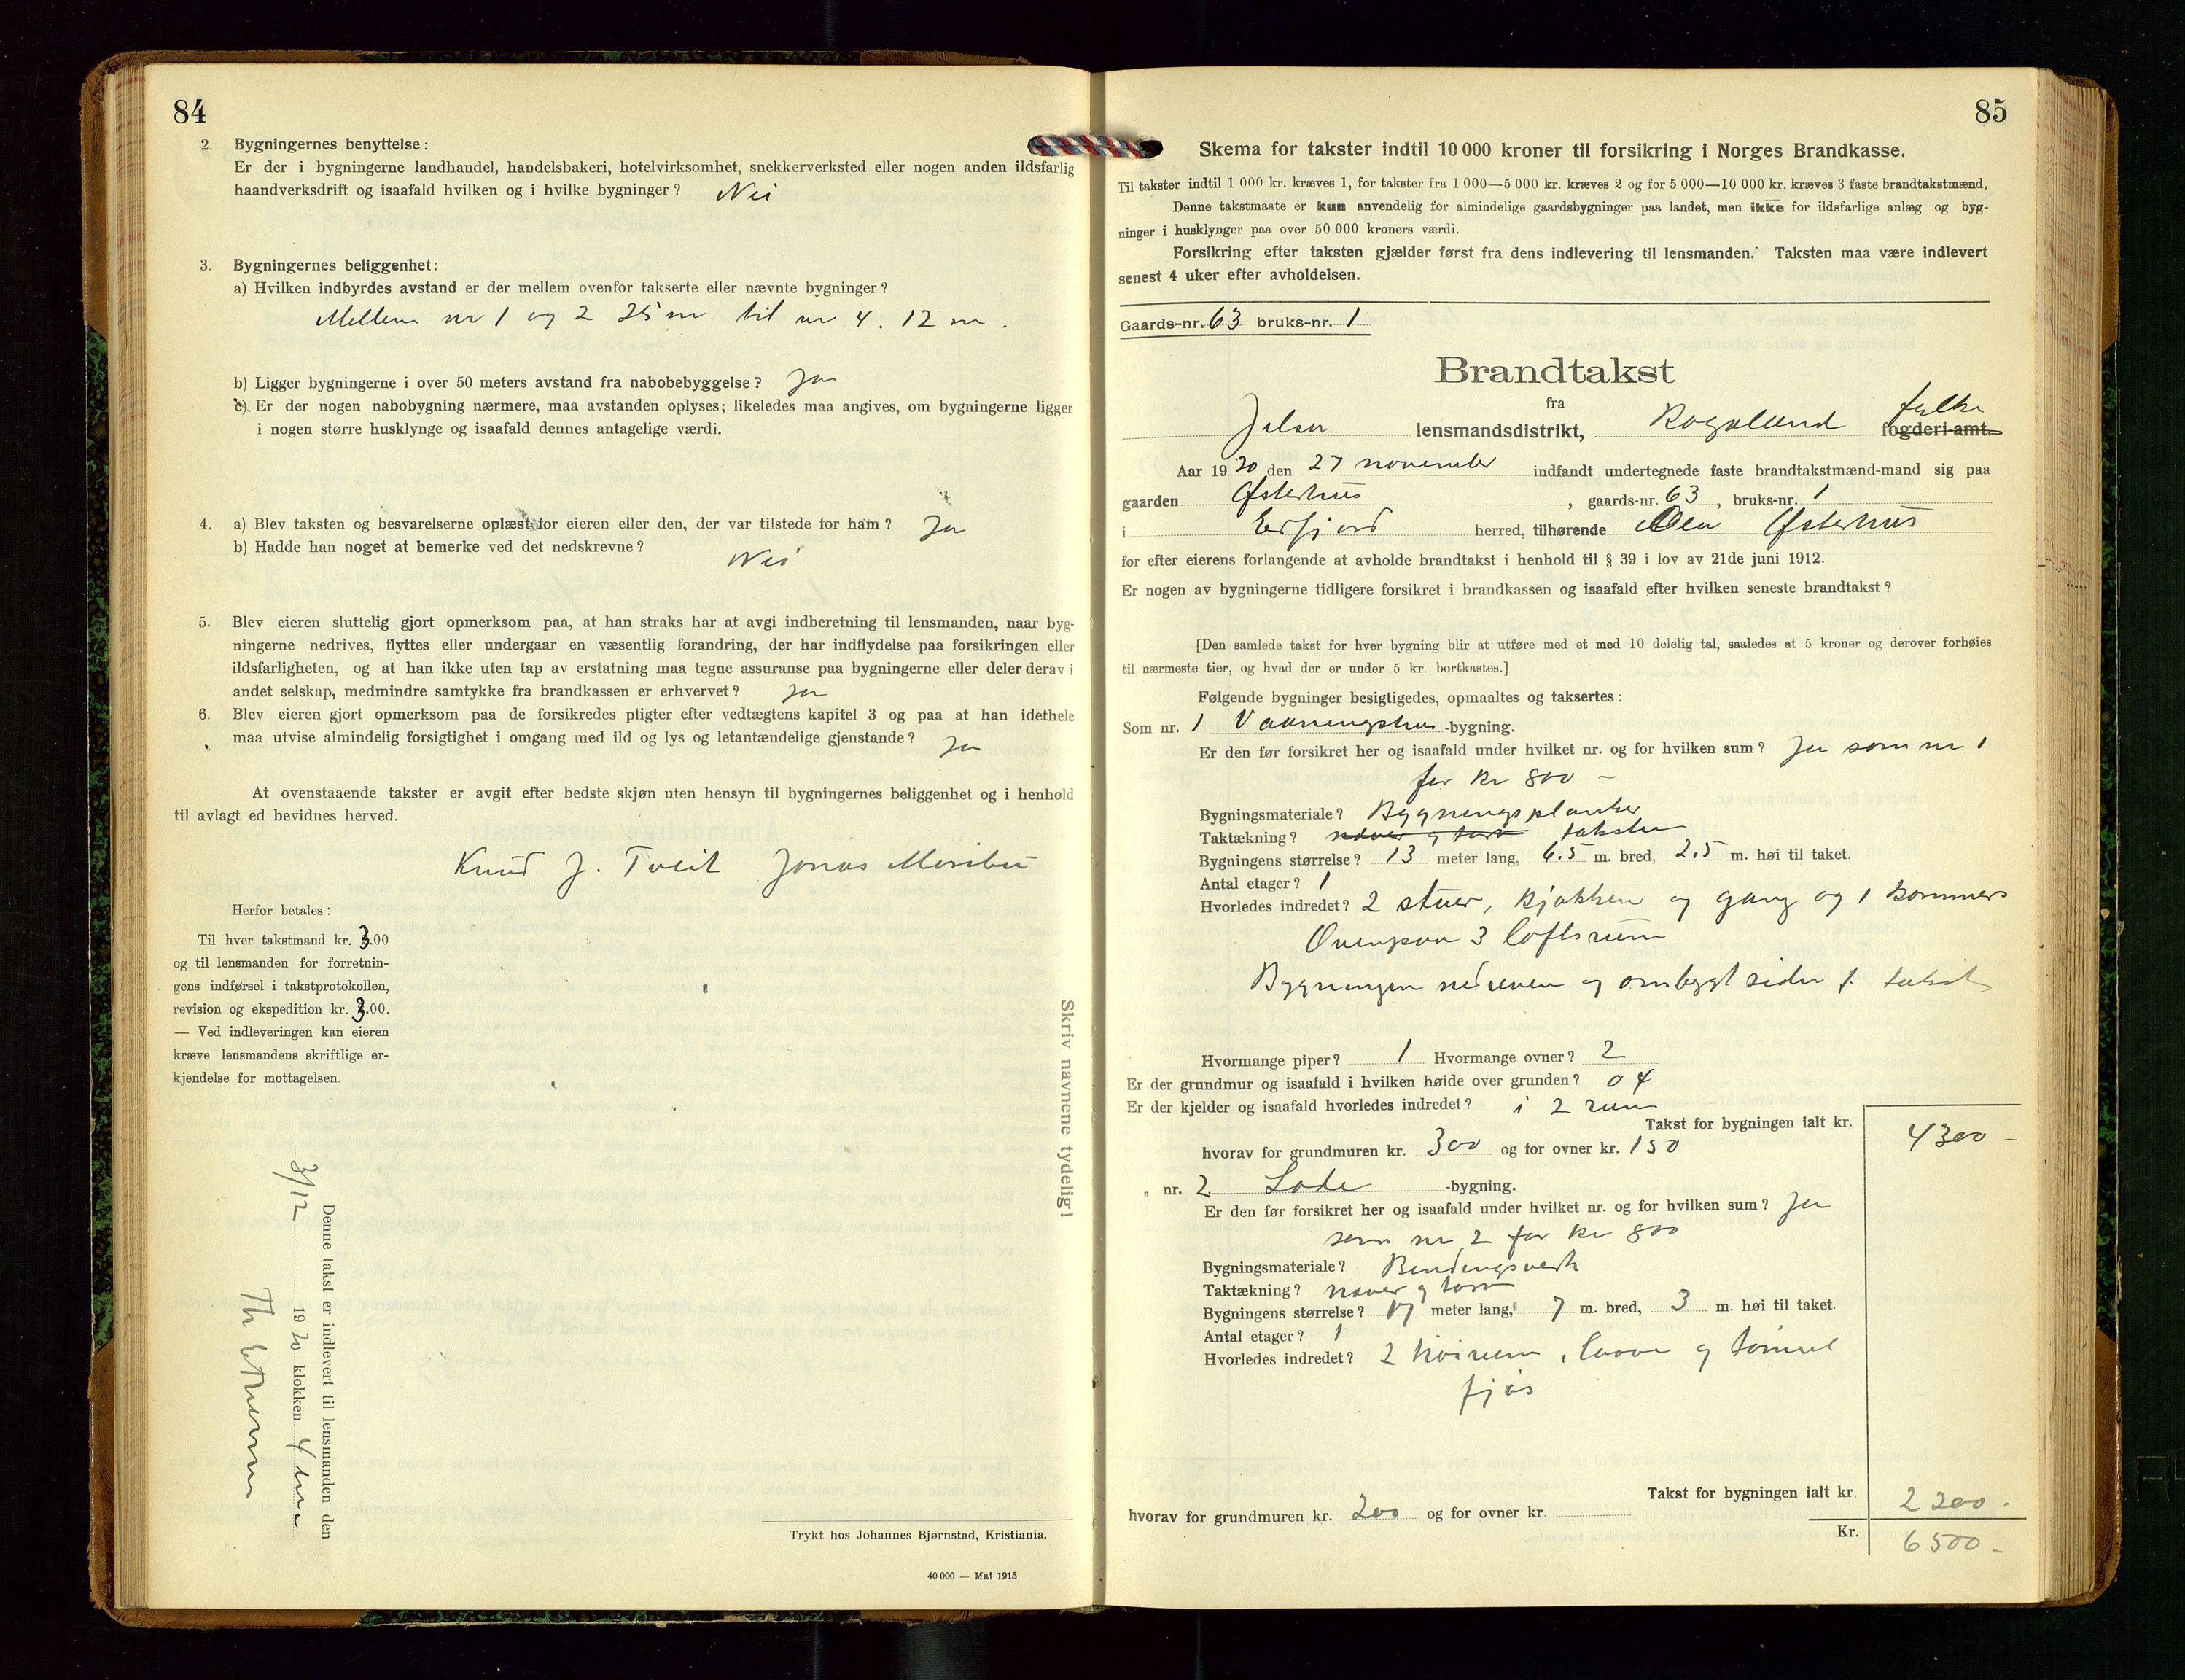 84
2. Bygningernes benyttelse:
Er der i bygningerne landhandel, handelsbakeri, hotelvirksomhet, snekkerverksted eller nogen anden ildsfarlig
haandverksdrift og isaafald hvilken og i hvilke bygninger? Nei
3. Bygningernes beliggenhet:
a) Hvilken indbyrdes avstand er der mellem ovenfor takserte eller nævnte bygninger?
Mellem nr 1 og 2 25 m til nr 4. 12 m.
b) Ligger bygningerne i over 50 meters avstand fra nabobebyggelse? Ja
c) Er der nogen nabobygning nærmere, maa avstanden oplyses; likeledes maa angives, om bygningerne ligger
i nogen større husklynge og isaafald dennes antagelige værdi.
4. a) Blev taksten og besvarelserne oplæst for eieren eller den, der var tilstede for ham? Ja
b) Hadde han noget at bemerke ved det nedskrevne?
Nei
5. Blev eieren sluttelig gjort opmerksom paa, at han straks har at avgi indberetning til lensmanden, naar byg-
ningerne nedrives, flyttes eller undergaar en væsentlig forandring, der har indflydelse paa forsikringen eller
ildsfarligheten, og at han ikke uten tap av erstatning maa tegne assuranse paa bygningerne eller deler derav i
andet selskap, medmindre samtykke fra brandkassen er erhvervet? Ja
6. Blev eieren gjort opmerksom paa de forsikredes pligter efter vedtægtens kapitel 3 og paa at han idethele
maa utvise almindelig forsigtighet i omgang med ild og lys og letantændelige gjenstande? Ja
At ovenstaaende takster er avgit efter bedste skjøn uten hensyn til bygningernes beliggenhet og i henhold
til avlagt ed bevidnes herved.
Knud J. Tveit Jonas
Herfor betales:
Til hver takstmand kr. 3.00
og til lensmanden for forretnin-
gens indførsel i takstprotokollen,
revision og ekspedition kr. 3.00.
— Ved indleveringen kan eieren
kræve lensmandens skriftlige er-
kjendelse for mottagelsen.
Skriv navnene tydelig!
Denne takst er indlevert til lensmanden den
3/12 1920 klokken 4
Trykt hos Johannes Bjørnstad, Kristiania.
40 000 — Mai 1915
85
Skema for takster indtil 10 000 kroner til forsikring i Norges Brandkasse.
Til takster indtil 1 000 kr. kræves 1, for takster fra 1 000—5 000 kr. kræves 2 og for 5 000—10 000 kr. kræves 3 faste brandtakstmænd.
Denne takstmaate er kun anvendelig for almindelige gaardsbygninger paa landet, men ikke for ildsfarlige anlæg og byg-
ninger i husklynger paa over 50 000 kroners værdi.
Forsikring efter taksten gjælder først fra dens indlevering til lensmanden. Taksten maa være indlevert
senest 4 uker efter avholdelsen.
Gaards-nr. 63 bruks-nr. 1
Brandtakst
fra
Jelsa lensmandsdistrikt, Rogaland fogderi-amt. fylke
Aar 1920 den 27 november indfandt undertegnede faste brandtakstmænd-mand sig paa
gaarden Østerhus, gaards-nr. 63, bruks-nr. 1
i Erfjord herred, tilhørende Ola Østerhus
for efter eierens forlangende at avholde brandtakst i henhold til § 39 i lov av 21de juni 1912.
Er nogen av bygningerne tidligere forsikret i brandkassen og isaafald efter hvilken seneste brandtakst?
[Den samlede takst for hver bygning blir at utføre med et med 10 delelig tal, saaledes at 5 kroner og derover forhøies
til nærmeste tier, og hvad der er under 5 kr. bortkastes.]
Følgende bygninger besigtigedes, opmaaltes og taksertes:
Som nr. 1 Vaaningshus-bygning.
Er den før forsikret her og isaafald under hvilket nr. og for hvilken sum? Ja som nr 1
for kr 800 –
Bygningsmateriale? Bygningsplanker
Taktækning? næver og torv taksten
Bygningens størrelse? 13 meter lang, 6.5 m. bred, 2.5 m. høi til taket.
Antal etager? 1
Hvorledes indredet? 2 stuer, kjøkken og gang og 1 kammers
Ovenpaa 3 loftsrum
Bygningen nedreven og ombygt siden f. takst
Hvormange piper? 1 Hvormange ovner? 2
Er der grundmur og isaafald i hvilken høide over grunden? 0 4
Er der kjelder og isaafald hvorledes indredet? i 2 rum
Takst for bygningen ialt kr. 4300 –
hvorav for grundmuren kr. 300 og for ovner kr. 150
„ nr. 2 Lade -bygning.
Er den før forsikret her og isaafald under hvilket nr. og for hvilken sum? Ja
som nr 2 for kr 800
Bygningsmateriale? Bindingsverk
Taktækning? næver og torv
Bygningens størrelse? 17 meter lang, 7 m. bred, 3 m. høi til taket.
Antal etager? 1
Hvorledes indredet? 2 høirum, laave og tømret
fjøs
Takst for bygningen ialt kr. 2200 -
hvorav for grundmuren kr. 200 og for ovner kr.
Kr. 6500 -